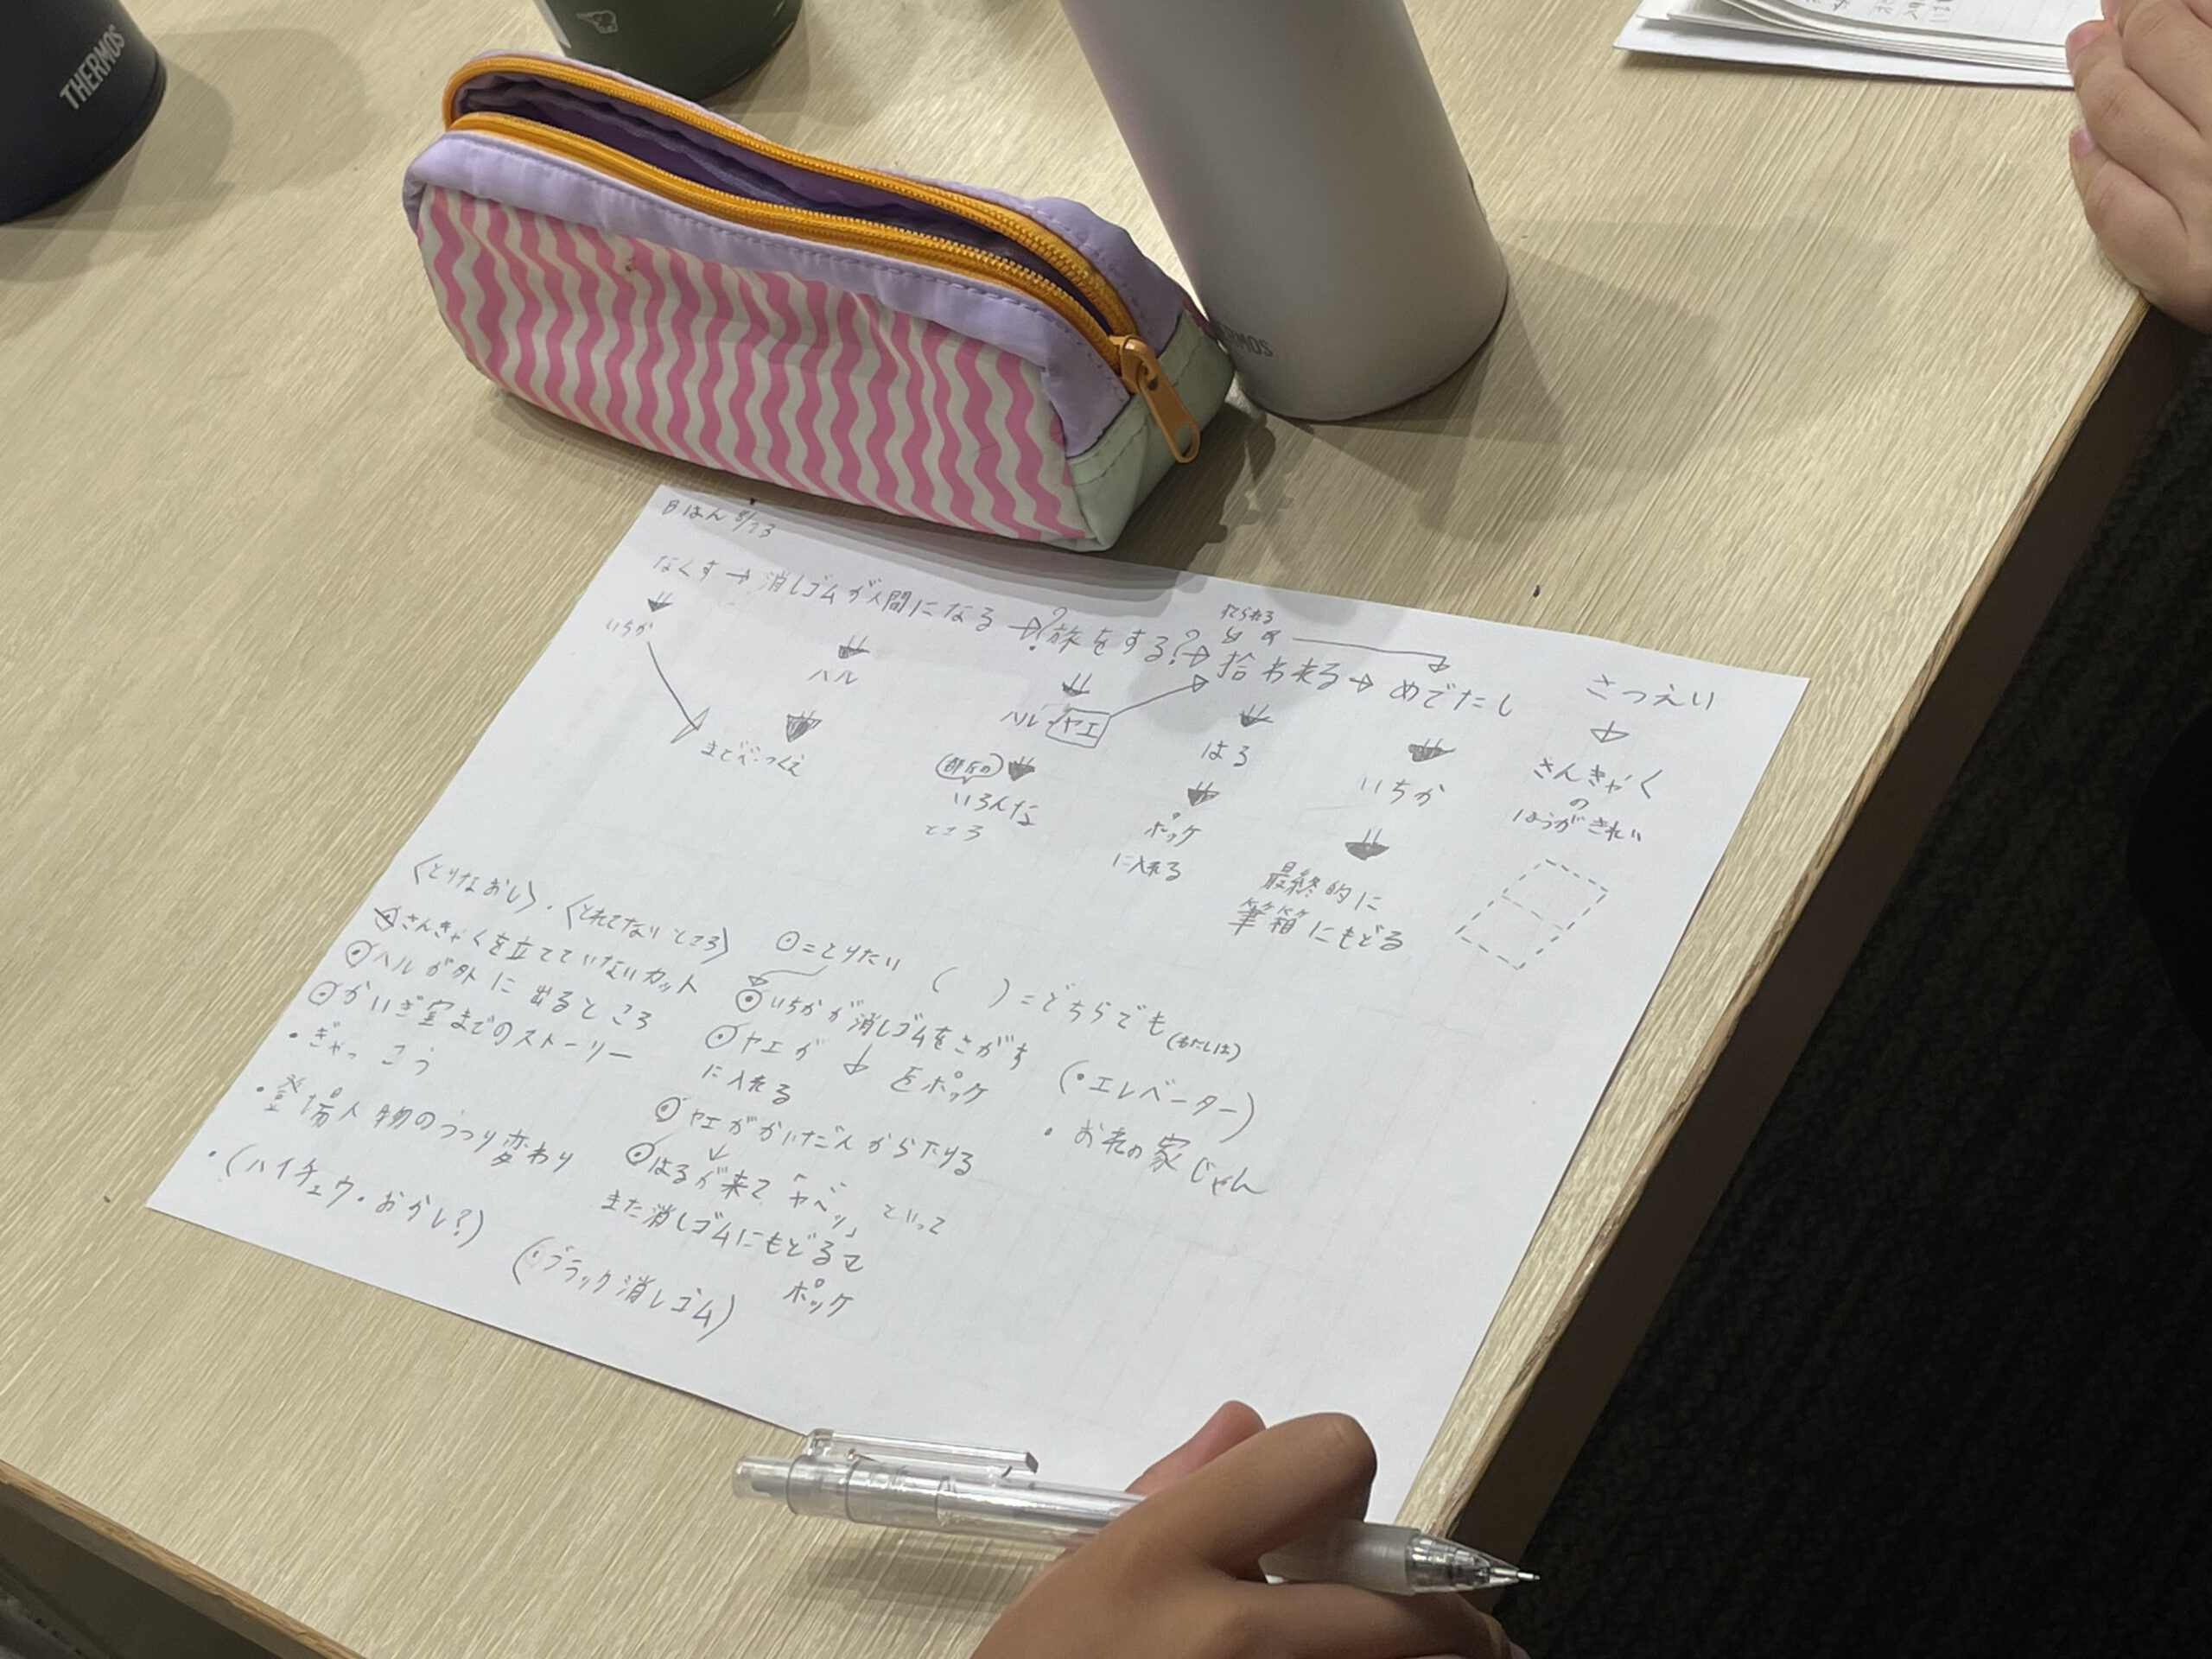 THERMOS
THERMOS
Bはん 8/23
なくす→消しゴムが人間になる→?旅をする?→拾われる→めでたし
すてられる
さつえい
いちか
ハル
ハル・ヤエ
はる
いちか
さんきゃく
の
ほうがきれい
まどべ・つくえ
部屋の
いろんな
ところ
ポッケ
に入れる
最終的に
筆箱にもどる
〈とりなおし〉・〈とれてないところ〉
さんきゃくを立てていないカット
ハルが外に出るところ
かいぎ室までのストーリー
・ぎゃっこう
・登場人物のうつり変わり
・(ハイチュウ・おかし?)
⊙=とりたい ( )=どちらでも(わたしは)
いちかが消しゴムをさがす
ヤエが↓をポッケ
に入れる
ヤエがかいだんからおりる
はるが来て「ヤベッ」といって
また消しゴムにもどるて
ポッケ
(ブラック消しゴム)
(・エレベーター)
・おれの家じゃん